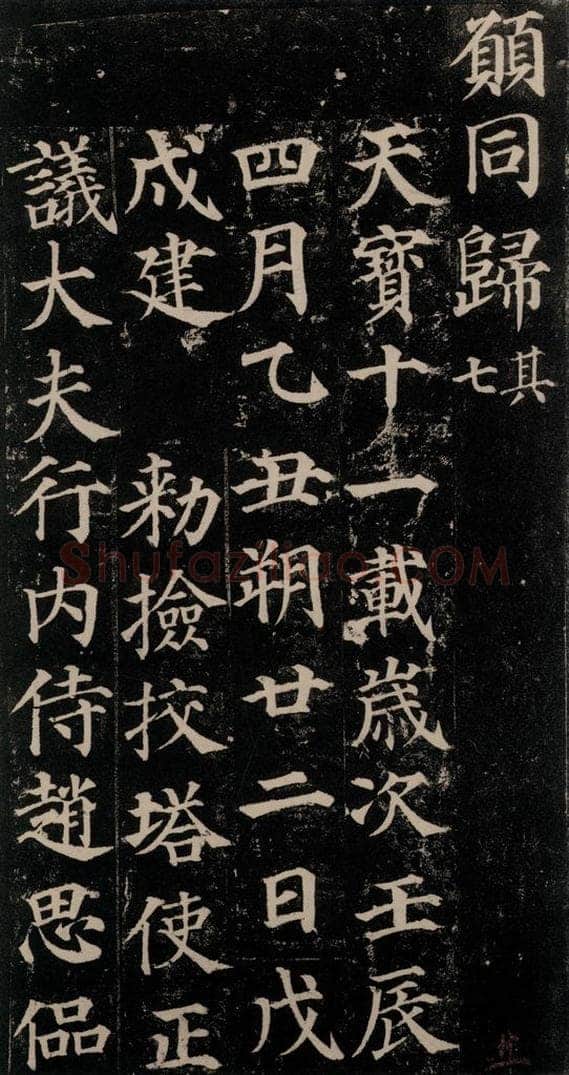 願同歸其七
天寶十一載歲次壬辰
四月乙丑朔廿二日戊
戍建 勑撿挍塔使正
議大夫行内侍趙思侃
Shufaziliao.COM